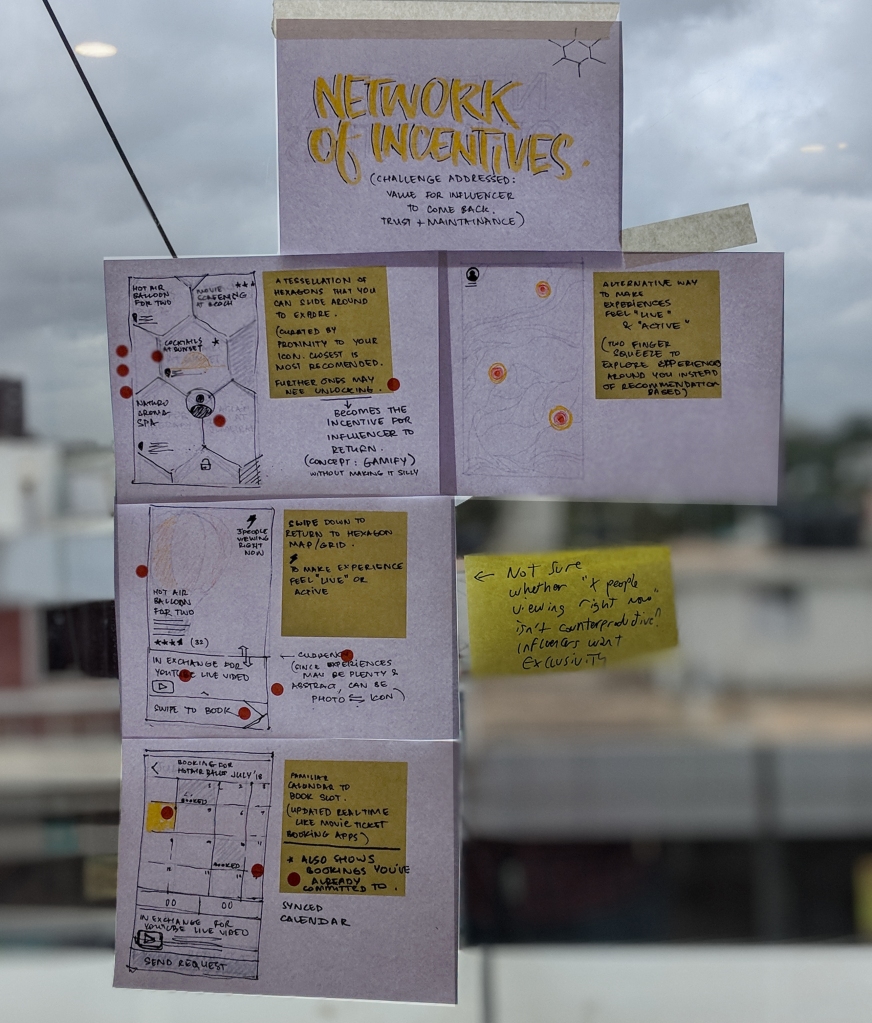 NETWORK
OF INCENTIVES.
(CHALLENGE ADDRESSED:
VALUE FOR INFLUENCER
TO COME BACK.
TRUST + MAINTAINANCE)
HOT AIR
BALLOON
FOR TWO
MOVIE
SCREENING
AT BEACH
COCKTAILS
AT SUNSET
NATURO
AROMA
SPA
A TESSELLATION OF
HEXAGONS THAT YOU
CAN SLIDE AROUND
TO EXPORE.
(CURATED BY
PROXIMITY TO YOUR
ICON. CLOSEST IS
MOST RECOMENDED.
FURTHER ONES MAY
NEE UNLOCKING.
BECOMES THE
INCENTIVE FOR
INFLUENCER TO
RETURN.
(CONCEPT: GAMIFY)
WITHOUT MAKING IT SILLY
ALTERNATIVE WAY
TO MAKE
EXPERIENCES
FEEL "LIVE"
& "ACTIVE"
(TWO FINGER
SQUEEZE TO
EXPLORE EXPERIENCES
AROUND YOU INSTEAD
OF RECOMMENDATION
BASED)
3 PEOPLE
VIEWING
RIGHT
NOW
HOT AIR
BALLOON
FOR TWO
(32)
IN EXCHANGE FOR
YOUTUBE LIVE VIDEO
SWIPE TO BOOK
SWIPE DOWN TO
RETURN TO HEXAGON
MAP/GRID.
TO MAKE EXPERIENCE
FEEL "LIVE" OR
ACTIVE
(SINCE EXPERIENCES
MAY BE PLENTY &
ABSTRACT, CAN BE
PHOTO ⇆ ICON)
← Not sure
whether "x people
viewing right now"
isn't counterproductive?
Influencers want
exclusivity
BOOKING FOR
HOT AIR BALLO JULY '18
BOOKED
BOOKED
IN EXCHANGE FOR
YOUTUBE LIVE VIDEO
SEND REQUEST
FAMILIAR
CALENDAR TO
BOOK SLOT.
(UPDATED REALTIME
LIKE MOVIE TICKET
BOOKING APPS)
* ALSO SHOWS
BOOKINGS YOU'VE
ALREADY
COMMITTED TO.
SYNCED
CALENDAR